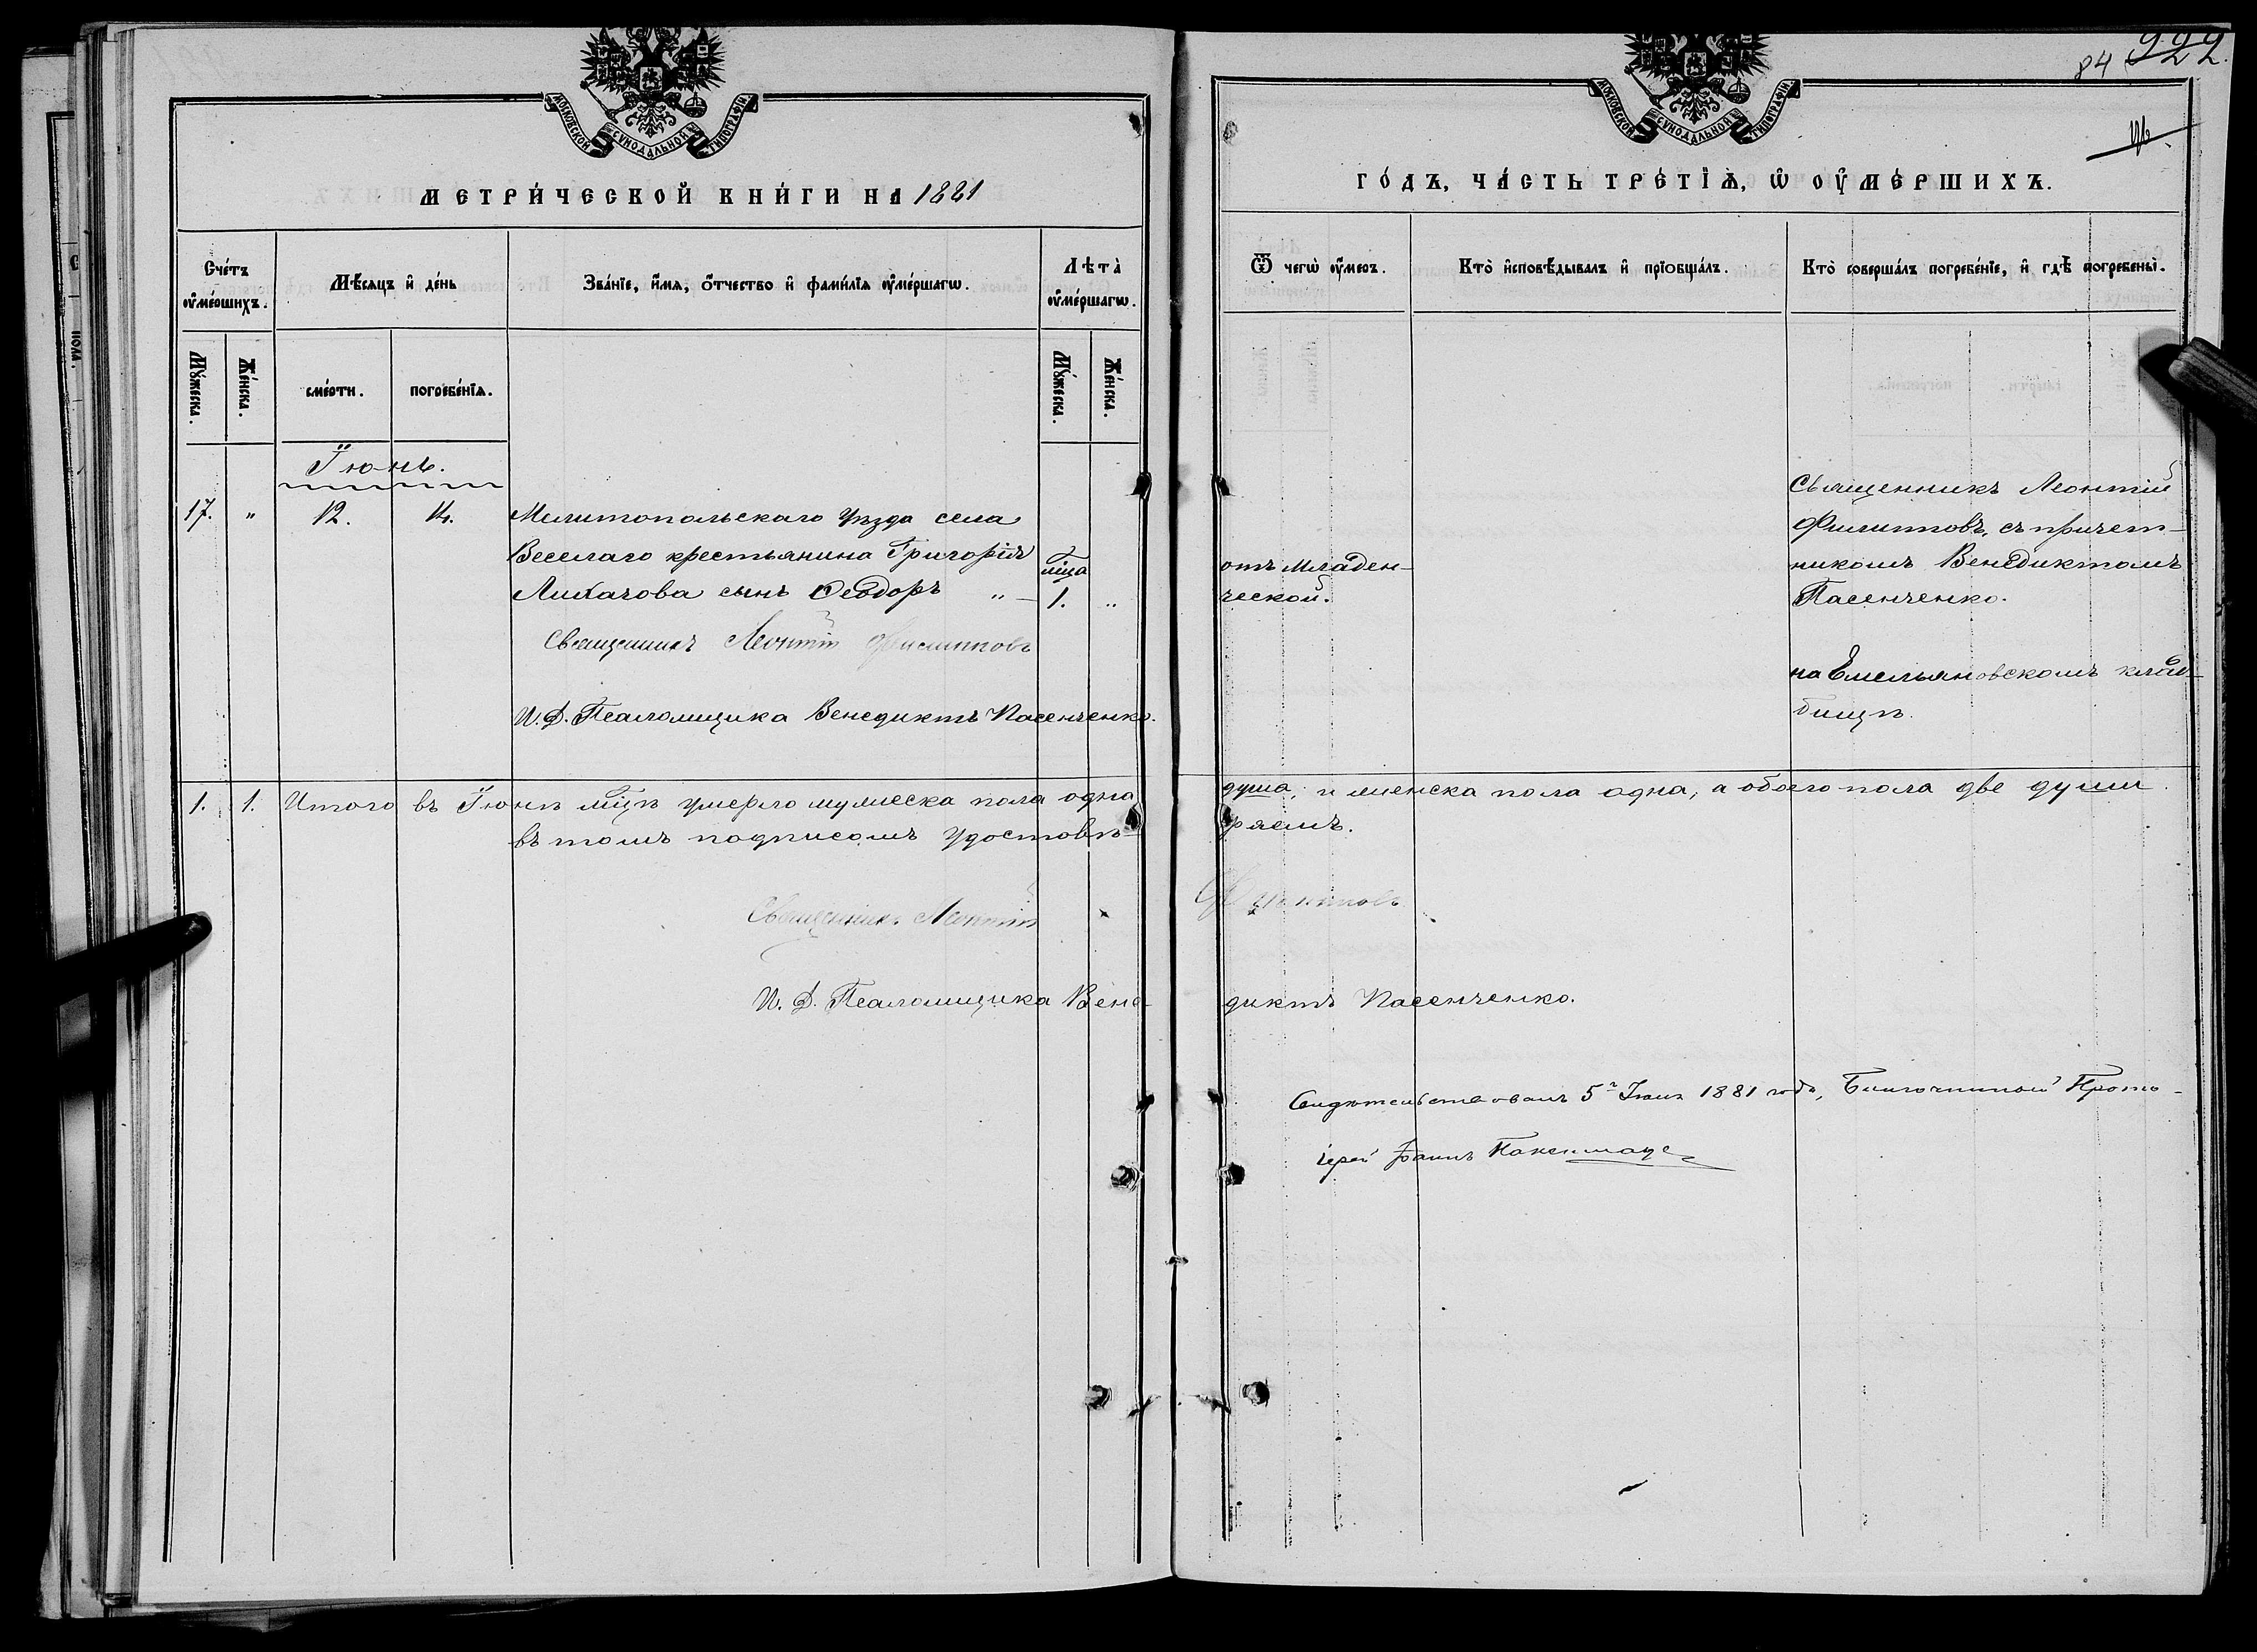 МОСКОВСКОЙ СѴНОДАЛЬНОЙ ТИПОГРАФІИ
МЕТРИ́ЧЕСКОЙ КНИ́ГИ НА 1881
Сче́тъ оу҆ме́ршихъ.
Мѣ́сяцъ и҆ де́нь
Зва́нїе, и҆́мя, ѻ҆́тчество и҆ фами́лїя оу҆ме́ршагѡ.
Лѣ́та̀ оу҆ме́ршагѡ.
Мꙋ́жеска.
Же́нска.
сме́рти.
погребе́нїѧ.
Мꙋ́жеска.
Же́нска.
Іюнь.
17. " 12. 14. Мелитопольскаго уѣзда села
Веселаго крестьянина Григорія
мѣца
Лихачова сынъ Ѳеодоръ " 1. "
Священникъ Леонтій Филипповъ
И. Д. Псаломщика Венедиктъ Пасенченко.
1. 1. Итого въ Іюнѣ мцѣ умерло мужеска пола одна
въ томъ подписомъ удостовѣ-
Священникъ Леонтій
И. Д. Псаломщика Вене-
84 922.
МОСКОВСКОЙ СѴНОДАЛЬНОЙ ТИПОГРАФІИ
ГО́ДЪ, ЧА́СТЬ ТРЕ́ТЇѦ, Ѡ҆ ОУ҆МЕ́РШИХЪ.
Ѿ чегѡ̀ оу҆́меръ.
Кто̀ и҆сповѣ́дывалъ и҆ прїобща́лъ.
Кто̀ соверша́лъ погребе́нїе, и҆ гдѣ̀ погребены̀.
Священникъ Леонтій
Филипповъ, съ причет-
отъ младен-
никомъ Венедиктомъ
ческой.
Пасенченко.
на Емельяновскомъ клад-
бищѣ.
душа, и женска пола одна, а обоего пола две души.
ряемъ.
Филипповъ
диктъ Пасенченко.
Свидѣтельствовалъ 5го Іюля 1881 года, Благочинный Прото-
іерей Іоаннъ